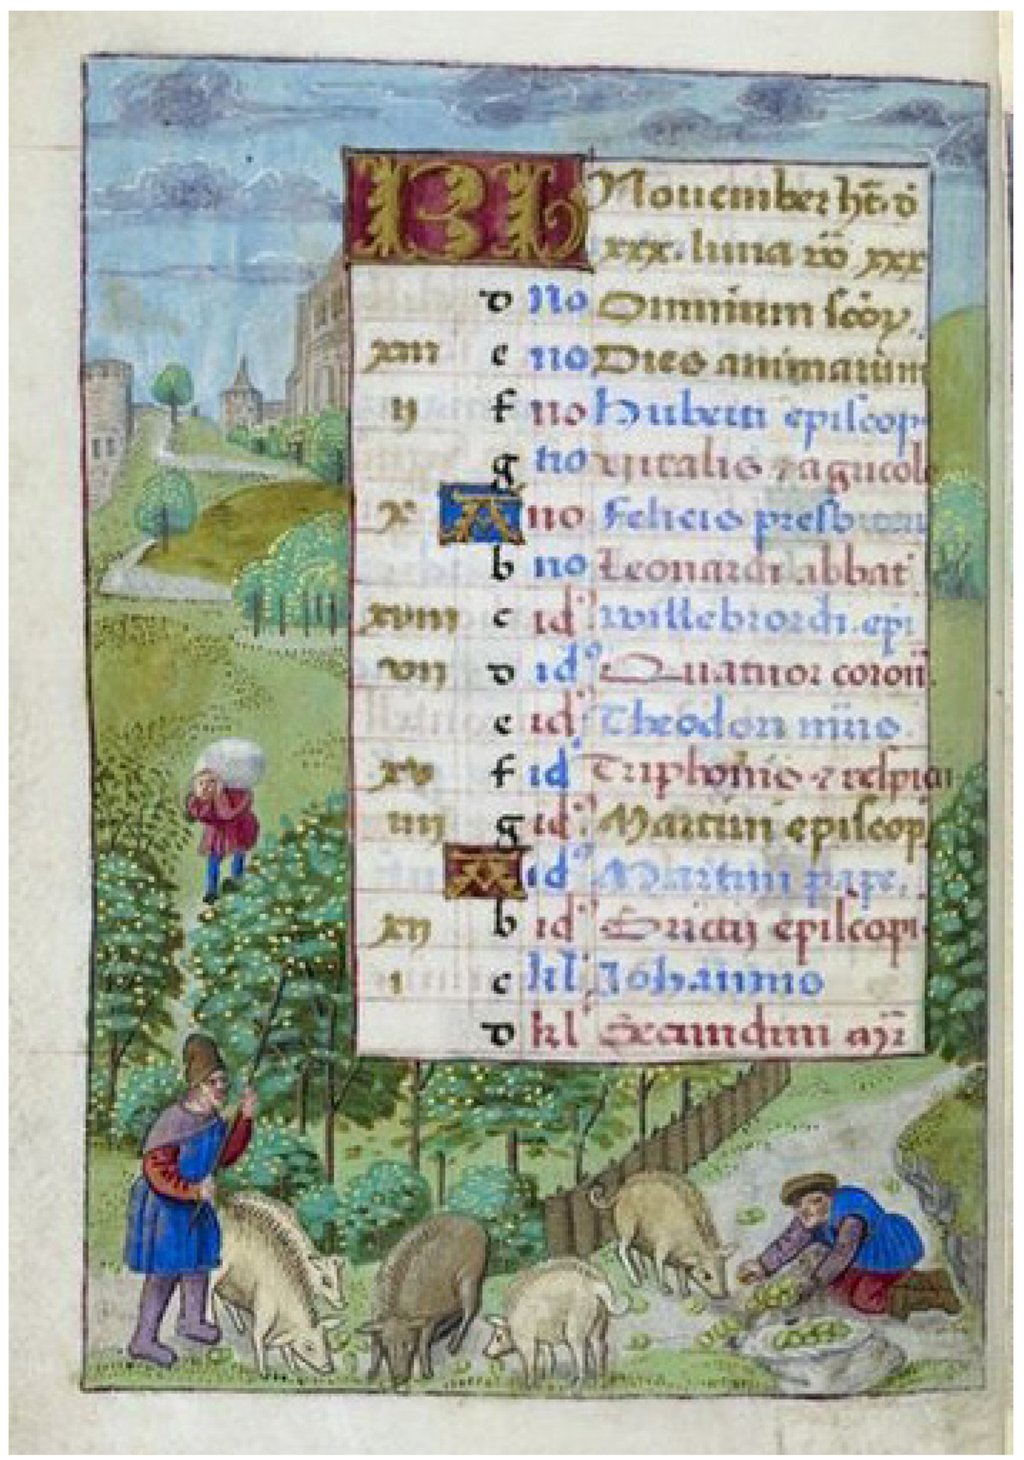 KL November ht. d
xxx. luna v̄o xxx
d no Omnium scōꝝ.
xiii e no Dies animarum
ii f no Huberti episcopi
g no Vitalis ⁊ agricol
x A no Felicis presb
b no Leonardi abbat
xviii c id' Willebrordi. epi
vii d id' Quatuor coroñ.
e id' Theodori
xv f id Triphonis ⁊ respicii
iiii g id' Martini episcopi
A id' Martini pape.
xii b id' Brictij episcopi
i c kl' Johannis
d kl'